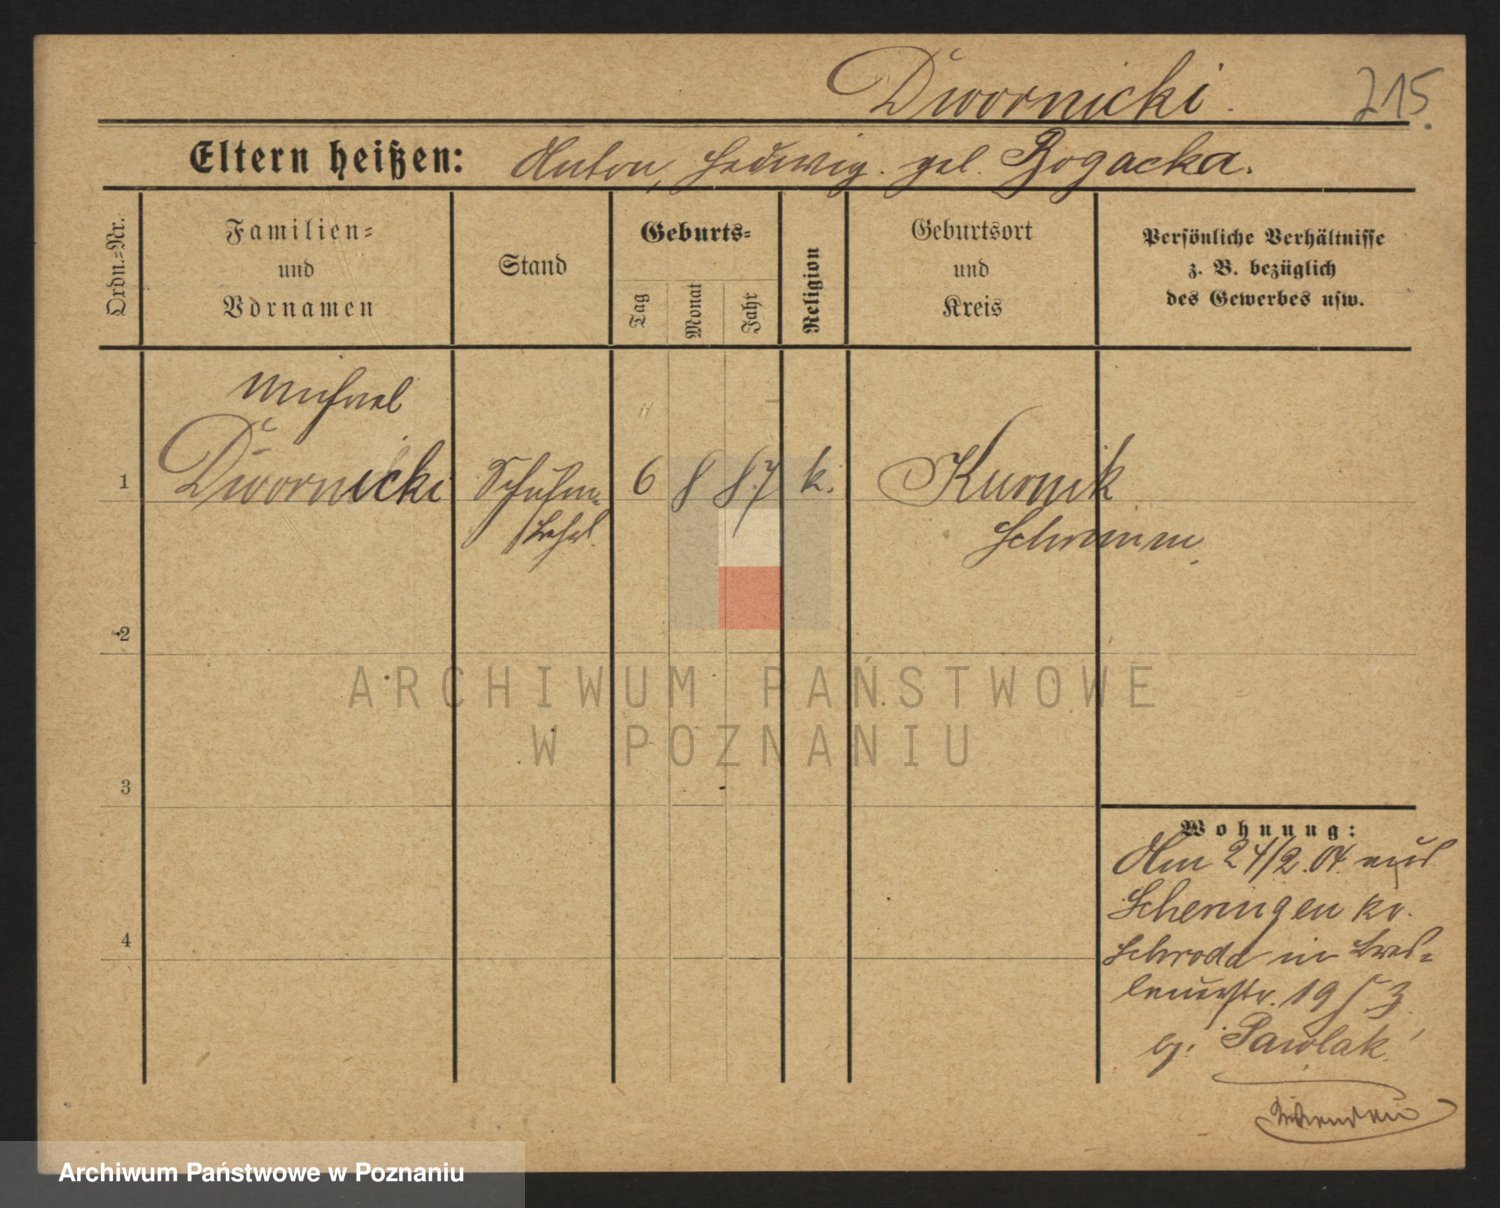 Dwornicki.
215.
Eltern heißen: Anton, Hedwig. geb. Bogacka.
Ordn.=Nr.
Familien=
und
Vornamen
Stand
Geburts=
Tag
Monat
Jahr
Religion
Geburtsort
und
Kreis
Persönliche Verhältnisse
z. B. bezüglich
des Gewerbes usw.
Michael
1 Dwornicki Schuhm= 6 8 87 k. Kurnik
Lehrl. Schrimm
2
3
4
Wohnung:
Am 24/2.04. aus
Scheringen Kr.
Schroda in Bres=
lauerstr. 19
b/. Pawlak
ARCHIWUM PAŃSTWOWE
W POZNANIU
Archiwum Państwowe w Poznaniu